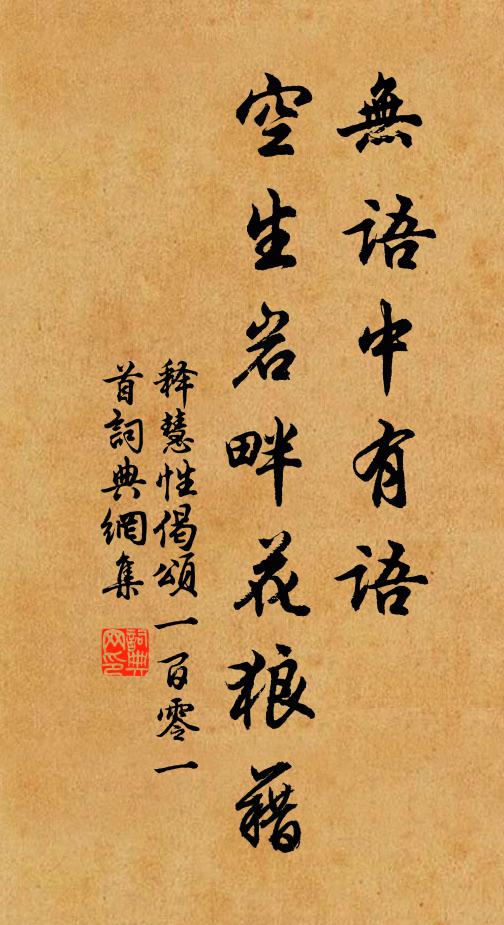 無語中有語
空生岩畔花狼藉
释慧性偈頌一百零一
首詞典網集
詞典
网印